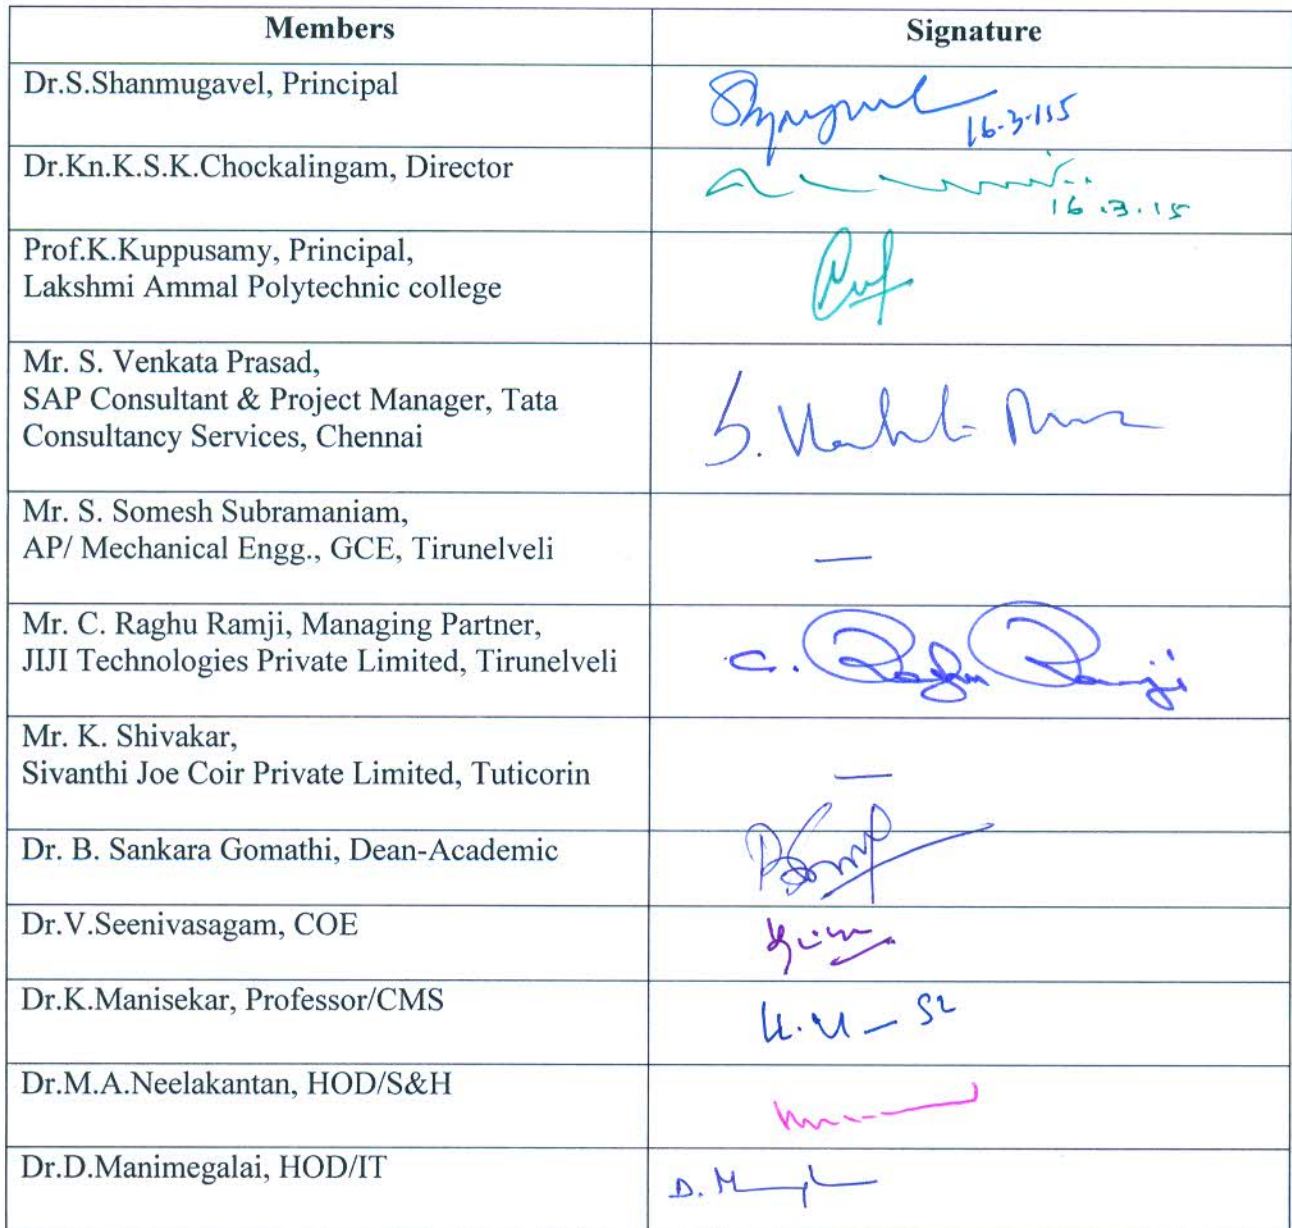 Members
Signature
Dr.S.Shanmugavel, Principal
16.3.115
Dr.Kn.K.S.K.Chockalingam, Director
16.3.15
Prof.K.Kuppusamy, Principal,
Lakshmi Ammal Polytechnic college
Mr. S. Venkata Prasad,
SAP Consultant & Project Manager, Tata
Consultancy Services, Chennai
Mr. S. Somesh Subramaniam,
AP/ Mechanical Engg., GCE, Tirunelveli
—
Mr. C. Raghu Ramji, Managing Partner,
JIJI Technologies Private Limited, Tirunelveli
C. Raghu Ramji
Mr. K. Shivakar,
Sivanthi Joe Coir Private Limited, Tuticorin
—
Dr. B. Sankara Gomathi, Dean-Academic
Dr.V.Seenivasagam, COE
Dr.K.Manisekar, Professor/CMS
Dr.M.A.Neelakantan, HOD/S&H
Dr.D.Manimegalai, HOD/IT